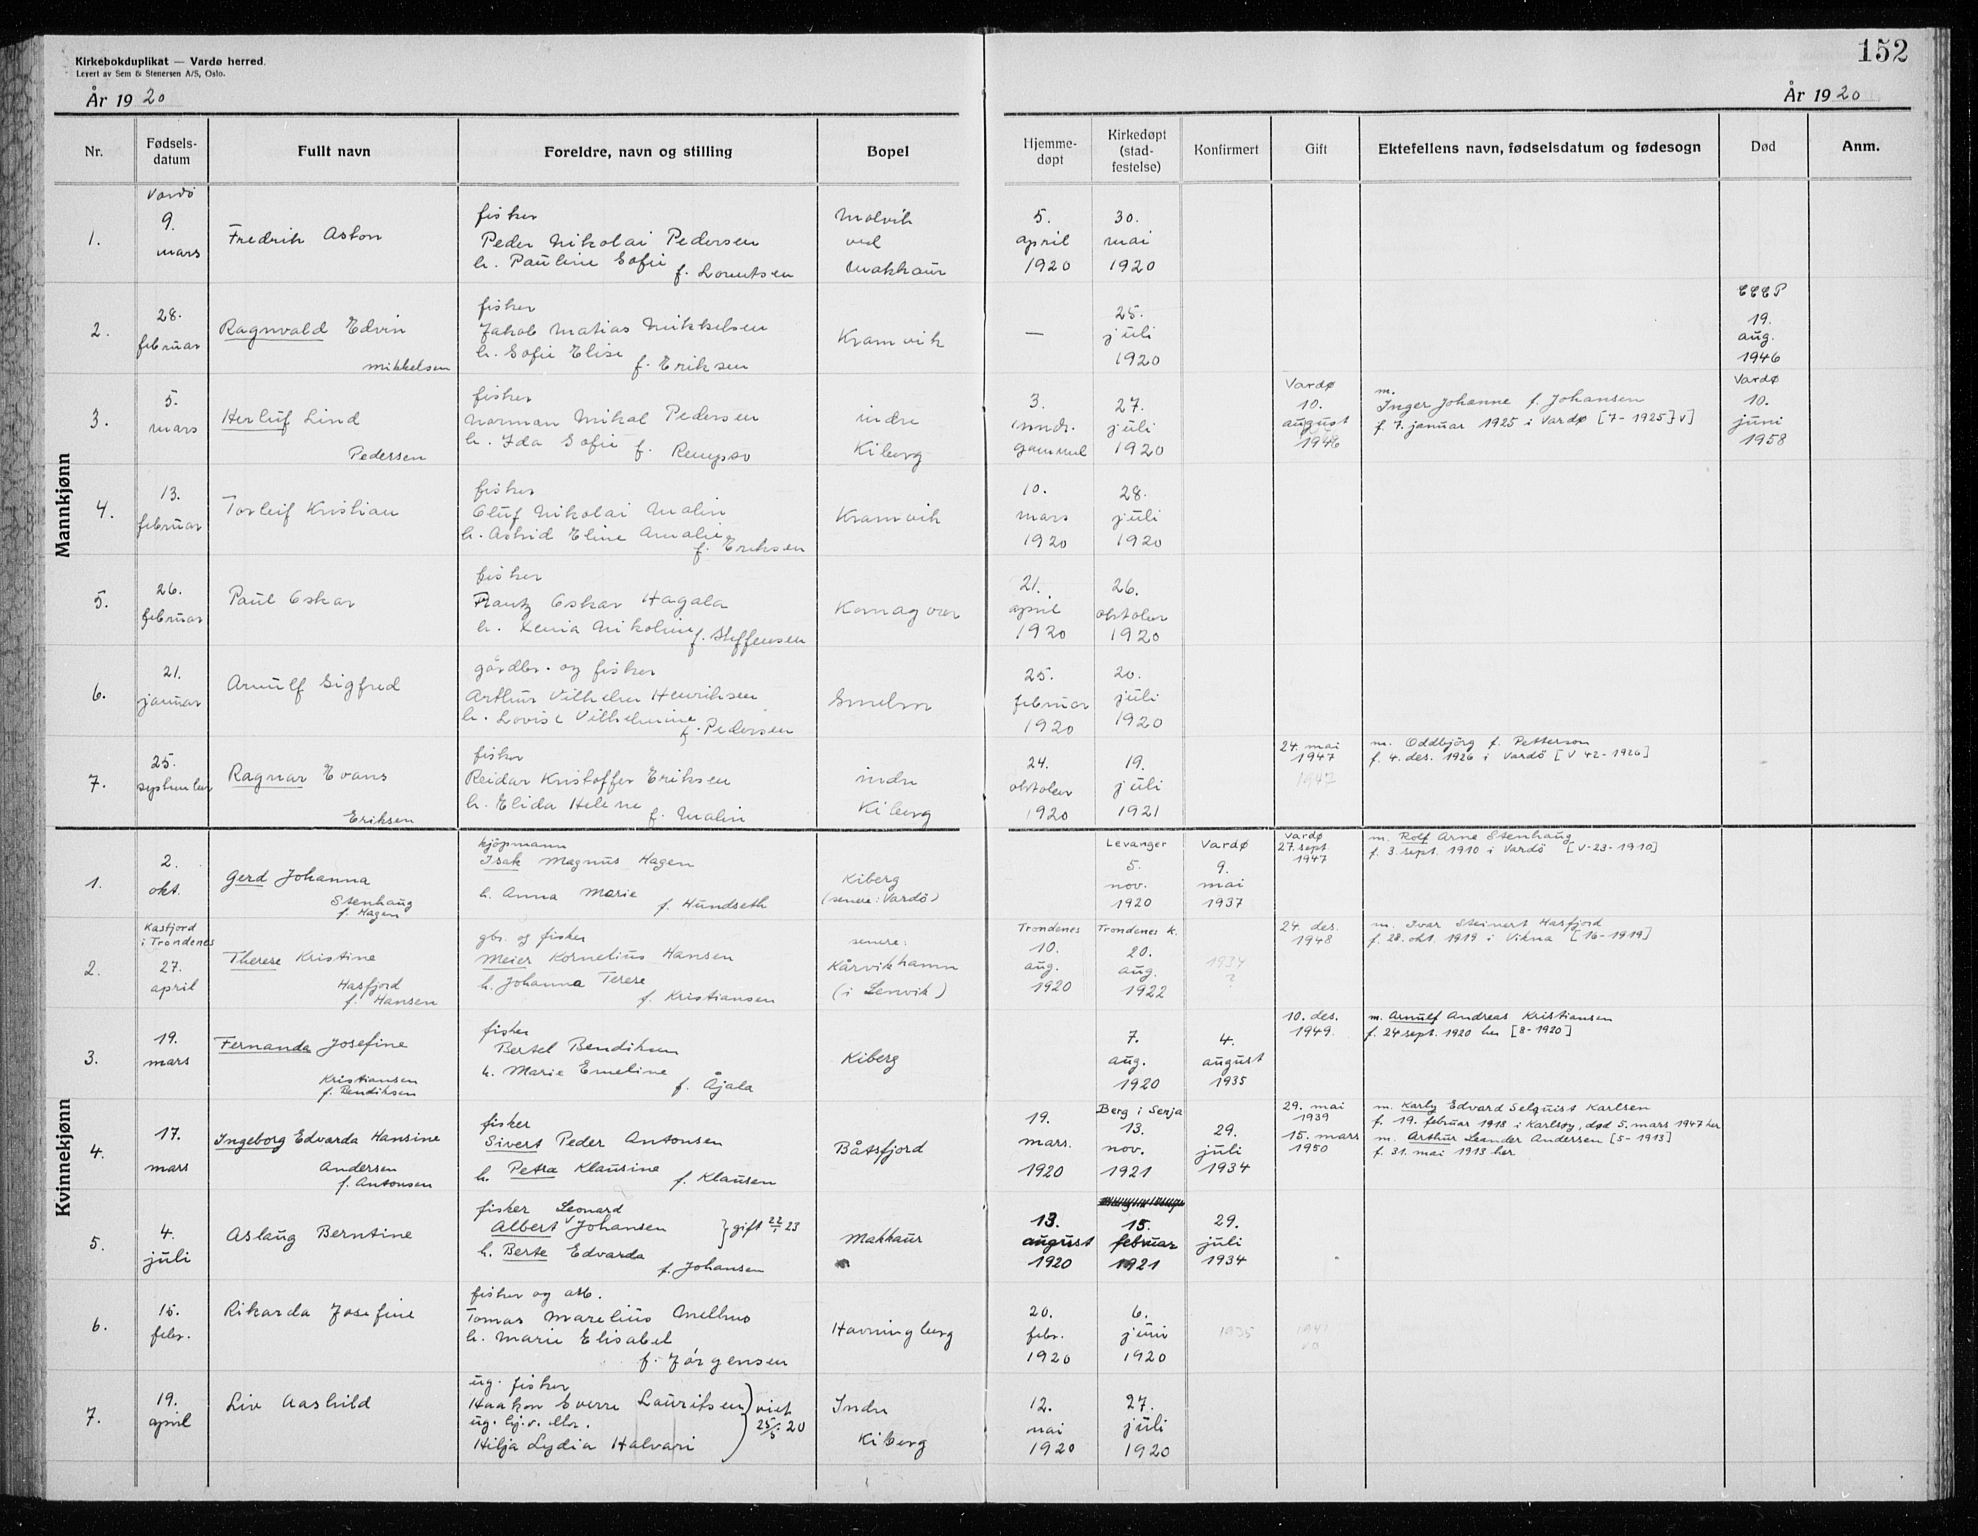 Kirkebokduplikat — Vardø herred.
Levert av Sem & Stenersen A/S, Oslo.
152
År 1920
År 1920
Nr.
Fødsels-
datum
Fullt navn
Foreldre, navn og stilling
Bopel
Hjemme-
døpt
Kirkedøpt
(stad-
festelse)
Konfirmert
Gift
Ektefellens navn, fødselsdatum og fødesogn
Død
Anm.
Mannkjønn
1.
Vardö
9.
mars
Fredrik Aston
fisker
Peder Nikolai Pedersen
h. Pauline Sofie f. Lorentsen
Molvik
ved
Makkaur
5.
april
1920
30.
mai
1920
2.
28.
februar
Ragnvald Edvin
Mikkelsen
fisker
Jakob Matias Mikkelsen
h. Sofie Elise
f. Eriksen
Kramvik
—
25.
juli
1920
19.
aug.
1946
3.
5.
mars
Herluf Lind
Pedersen
fisker
Norman Mikal Pedersen
h. Ida Sofie f.
indre
Kiberg
3.
gammel
27.
juli
1920
Vardø
10.
august
1946
m.
Inger Johanne f. Johansen
f. 7. januar 1925 i Vardø [7-1925 V]
Vardø
10.
juni
1958
4.
13.
februar
Torleif Kristian
fisker
Oluf Nikolai Malin
h. Astrid Eline Amalie
f. Eriksen
Kramvik
10.
mars
1920
28.
juli
1920
5.
26.
februar
Paul Oskar
fisker
Frantz Oskar Hagala
h. Xenia Nikoline f. Steffensen
Komagvær
21.
april
1920
26.
oktober
1920
6.
21.
januar
Arnulf Sigfred
gårdbr. og fisker
Arthur Vilhelm Henriksen
h. Lovise Vilhelmine
f. Pedersen
25.
februar
1920
20.
juli
1920
7.
25.
september
Ragnar Evans
Eriksen
fisker
Reidar Kristoffer Eriksen
h. Elida Helene
f. Malin
indre
Kiberg
24.
oktober
1920
19.
juli
1921
24. mai
1947
1947
m. Oddbjörg f. Petterson
f. 4. des. 1926 i Vardö [V 42-1926]
Kvinnekjønn
1.
2.
okt.
Gerd Johanna
Stenhaug
f. Hagen
kjöpmann
Isak Magnus Hagen
h. Anna Marie
f. Hundseth
Kiberg
(senere: Vardö)
Levanger
5.
nov.
1920
Vardø
9.
mai
1937
Vardø
27. sept.
1947
m. Rolf Arne Stenhaug
f. 3. sept. 1910 i Vardö [V-23-1910]
2.
Kasfjord
i Trondenes
27.
april
Therese Kristine
Hasfjord
f. Hansen
gbr. og fisker
Meier Kornelius Hansen
h. Johanna Terese
f. Kristiansen
senere:
Kårvikhamn
(i Lenvik)
Trondenes
10.
aug.
1920
Trondenes k.
20.
aug.
1922
1934
?
24. des.
1948
m. Ivar Steinert Hasfjord
f. 28. okt. 1919 i Vikna [16-1919]
3.
19.
mars
Fernanda Josefine
Kristiansen
f. Bendiksen
fisker
Bertel Bendiksen
h. Marie Emeline
f. Åjala
Kiberg
7.
aug.
1920
4.
august
1935
10. des.
1949.
m. Arnulf Andreas Kristiansen
f. 24 sept. 1920 her [8-1920]
4.
17.
mars
Ingeborg Edvarda Hansine
Andersen
f. Antonsen
fisker
Sivert Peder Antonsen
h. Petra Klausine
f. Klausen
Båtsfjord
19.
mars.
1920
Berg i Senja
13.
nov.
1921
29.
juli
1934
29. mai
1939
15. mars
1950
m. Karly Edvard Selquist Karlsen
f. 19. februar 1918 i Karlsøy, død 5. mars 1947 her
m. Arthur Leander Andersen [5-1913]
f. 31. mai 1913 her
5.
4.
juli
Aslaug Berntine
fisker Leonard
Albert Johansen
h. Berte Edvarda
f. Johansen
} gift 22/1 23
Makkaur
13.
august
1920
15.
februar
1921
29.
juli
1934
6.
15.
febr.
Rikarda Josefine
fisker og arb.
Tomas Marelius Melhus
h. Marie Elisabet
f. Jørgensen
Havningberg
20.
febr.
1920
6.
juni
1920
1935
7.
19.
april
Liv Aashild
ug. fisker
Haakon Sverre Lauritsen
Hilja Lydia Halvari
viet
25/5 20
Indre
Kiberg
12.
mai
1920
27.
juli
1920